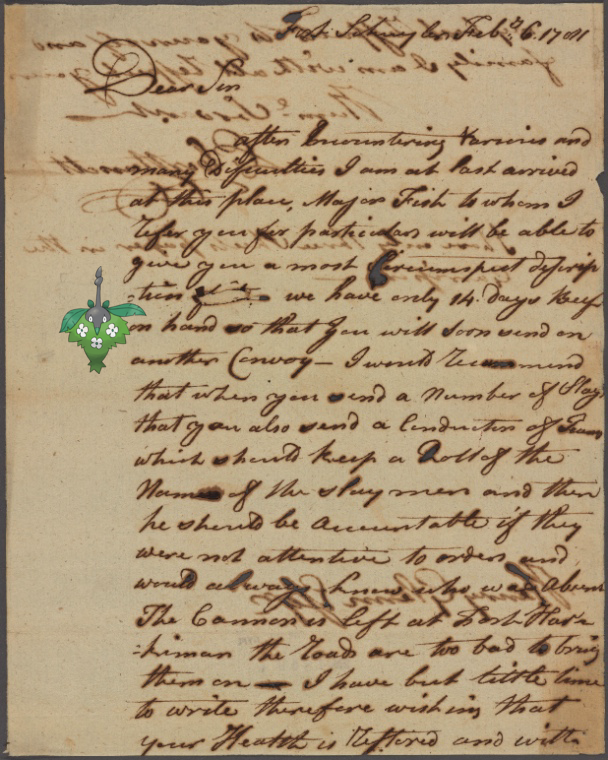 Fort Schuyler Feb.y 6. 1781
Dear Sir
after Encountering Various and
many Difficulties I am at last arrived
at this place, Major Fish to whom I
Refer you for particulars will be able to
give you a most Circumspect descrip
-tion we have only 14 days Beef
on hand so that you will soon send on
another Convoy — I would Recommend
that when you send a Number of Slays
that you also send a Conductor of Teams
which should keep a Roll of the
Names of the slay men and then
he should be Accountable if they
were not attentive to orders and
would always know who was absent
The Cannon is left at Fort Hark-
-kiman the Roads are too bad to bring
them on — I have but little time
to write therefore wishing that
your Health is Restored and with